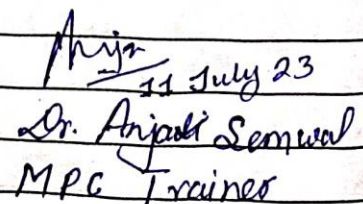 11 July 23
Dr. Anjali Semwal
MPC Trainer